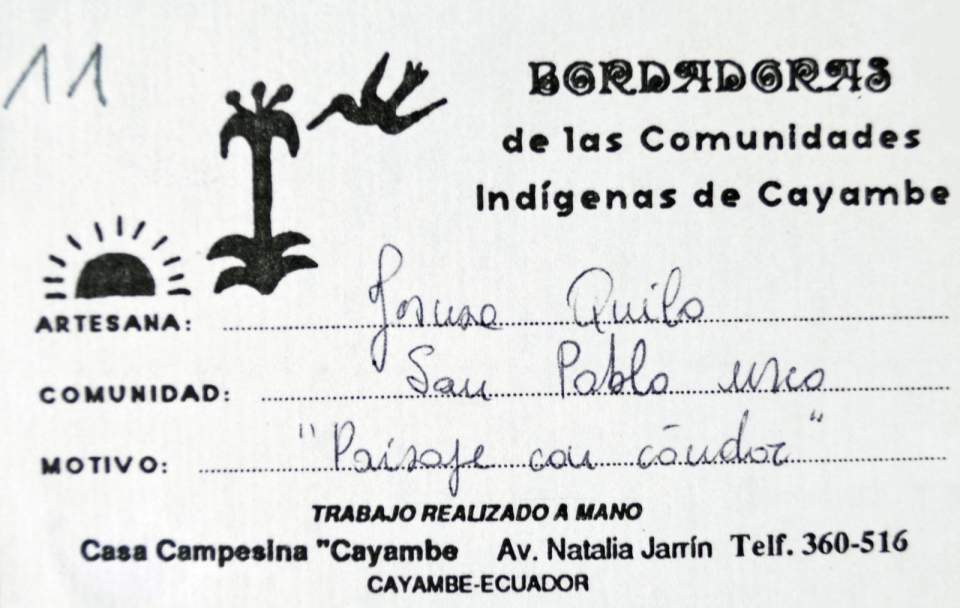 11
BORDADORAS
de las Comunidades
Indígenas de Cayambe
ARTESANA: Quilo
COMUNIDAD: San Pablo urco
MOTIVO: "Paisaje con cóndor"
TRABAJO REALIZADO A MANO
Casa Campesina "Cayambe Av. Natalia Jarrín Telf. 360-516
CAYAMBE-ECUADOR